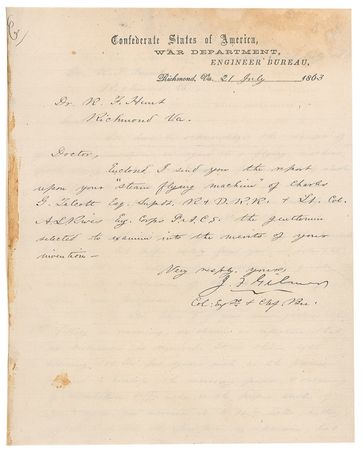 Confederate States of America,
WAR DEPARTMENT,
ENGINEER BUREAU,
Richmond, Va. 21 July 1863
Dr. R. F. Hunt
Richmond Va.
Doctor,
Enclosed I send you the report
upon your "steam flying machine" of Charles
G. Talcott Esq. Supdt. R & D. R.R. & Lt. Col.
A L Rives Eng. Corps P. A. C. S. the gentlemen
selected to examine into the merits of your
invention —
Very respty. yours
J. F. Gilmer
Col: & Chf. Bu.